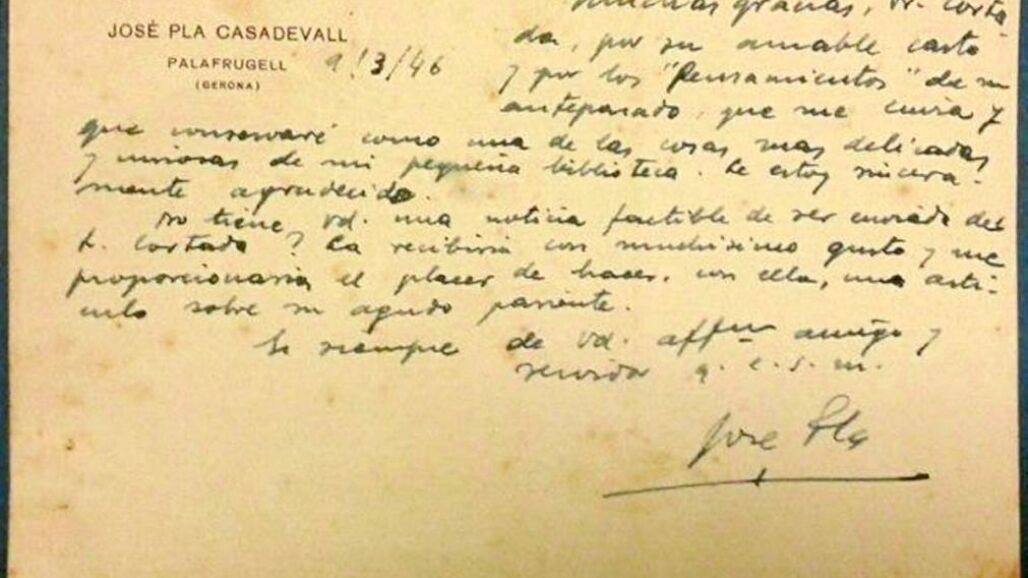 JOSÉ PLA CASADEVALL
PALAFRUGELL
(GERONA)
9/3/46
Muchas gracias, Sr. Corta-
da, por su amable carta
y por los "Pensamientos" de su
antepasado, que me envia y
que conservaré como una de las cosas mas delicadas
y curiosas de mi pequeña biblioteca. Le estoy sincera-
mente agradecido.
No tiene Vd. una noticia factible de ser enviada del
Sr. Cortada? La recibiria con muchisimo gusto y me
proporcionaria el placer de hacer, con ella, una arti-
culo sobre su agudo pariente.
siempre de Vd. affmo amigo y
servidor q. e. s. m.
Jose Pla